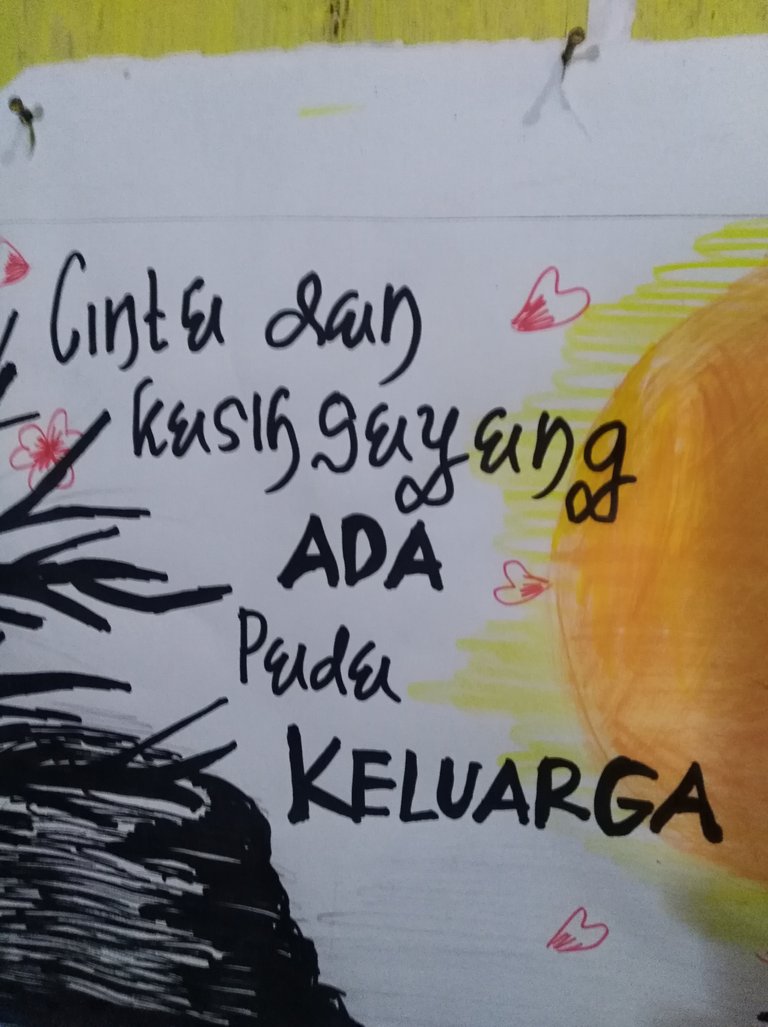 Cinta dan
kasih sayang
ADA
Pada
KELUARGA